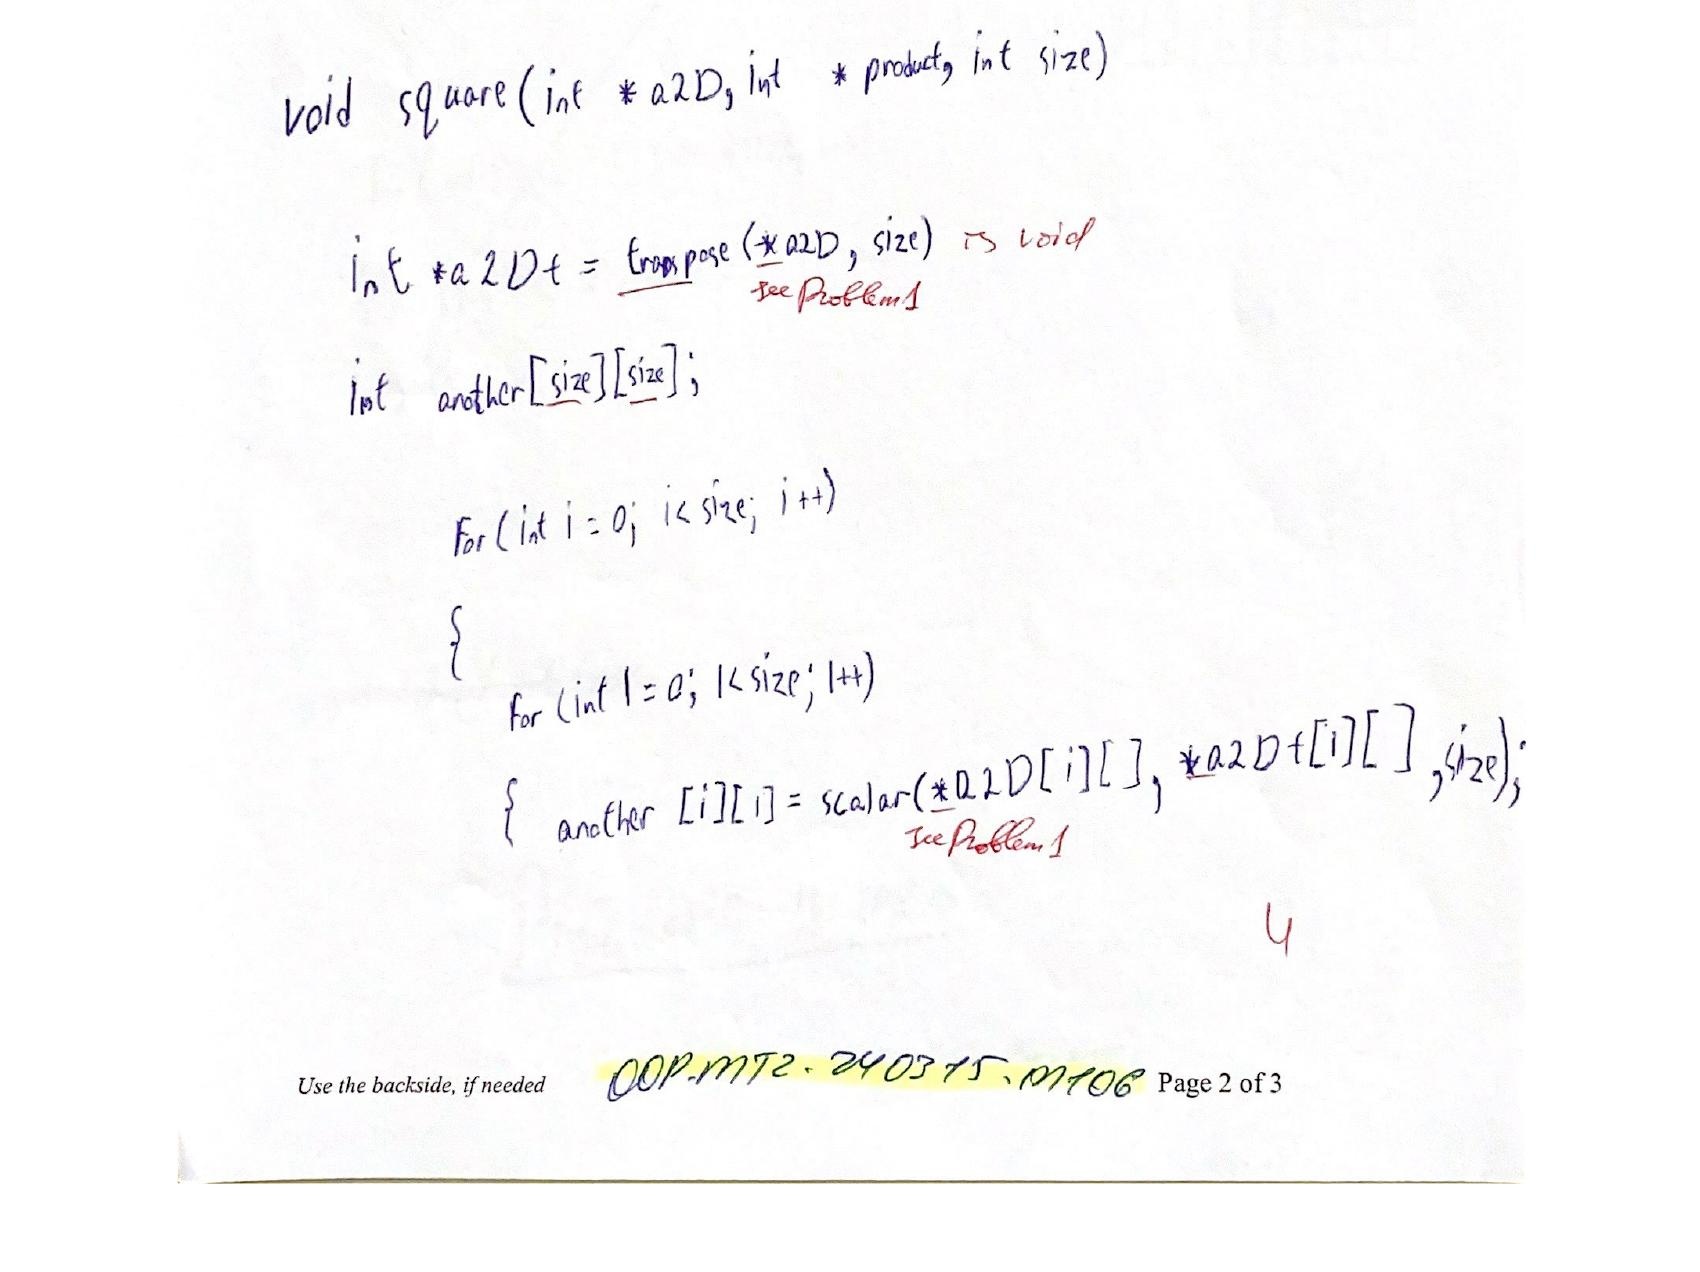 void square(int *a2D, int * product, int size)
int *a2Dt = transpose (*a2D, size) is void
see Problem1
int another[size][size];
For(int i=0; i<size; i++)
{
for (int l=0; l<size; l++)
{ another [i][l] = scalar(*a2D[i][], *a2Dt[l][],size);
see Problem1
4
Use the backside, if needed OOP.MT2.240315.M106 Page 2 of 3